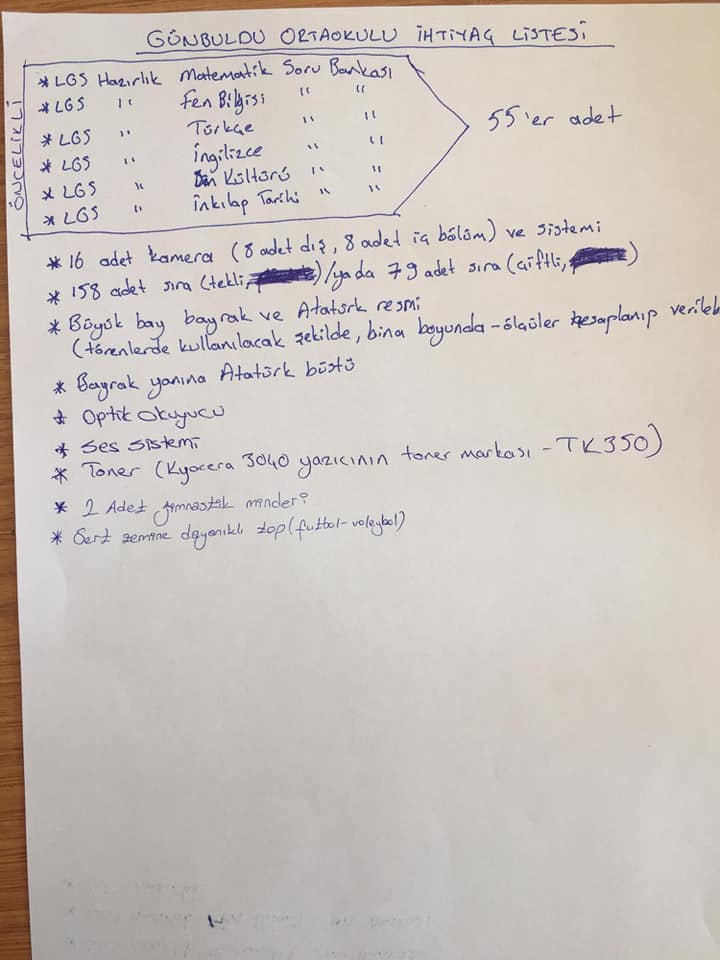 GÜNBULDU ORTAOKULU İHTİYAÇ LİSTESİ
ÖNCELİKLİ
* LGS Hazırlık Matematik Soru Bankası
* LGS " Fen Bilgisi " "
* LGS " Türkçe " "
* LGS " İngilizce " "
* LGS " Din Kültürü " "
* LGS " İnkılap Tarihi " "
55'er adet
* 16 adet kamera (8 adet dış, 8 adet iç bölüm) ve sistemi
* 158 adet sıra (tekli, )/ya da 79 adet sıra (çiftli, )
* Büyük bay bayrak ve Atatürk resmi
(törenlerde kullanılacak şekilde, bina boyunda - ölçüler hesaplanıp verileb
* Bayrak yanına Atatürk büstü
* Optik Okuyucu
* Ses sistemi
* Toner (Kyocera 3040 yazıcının toner markası - TK350)
* 2 Adet jimnastik minderi
* Sert zemine dayanıklı top (futbol-voleybol)